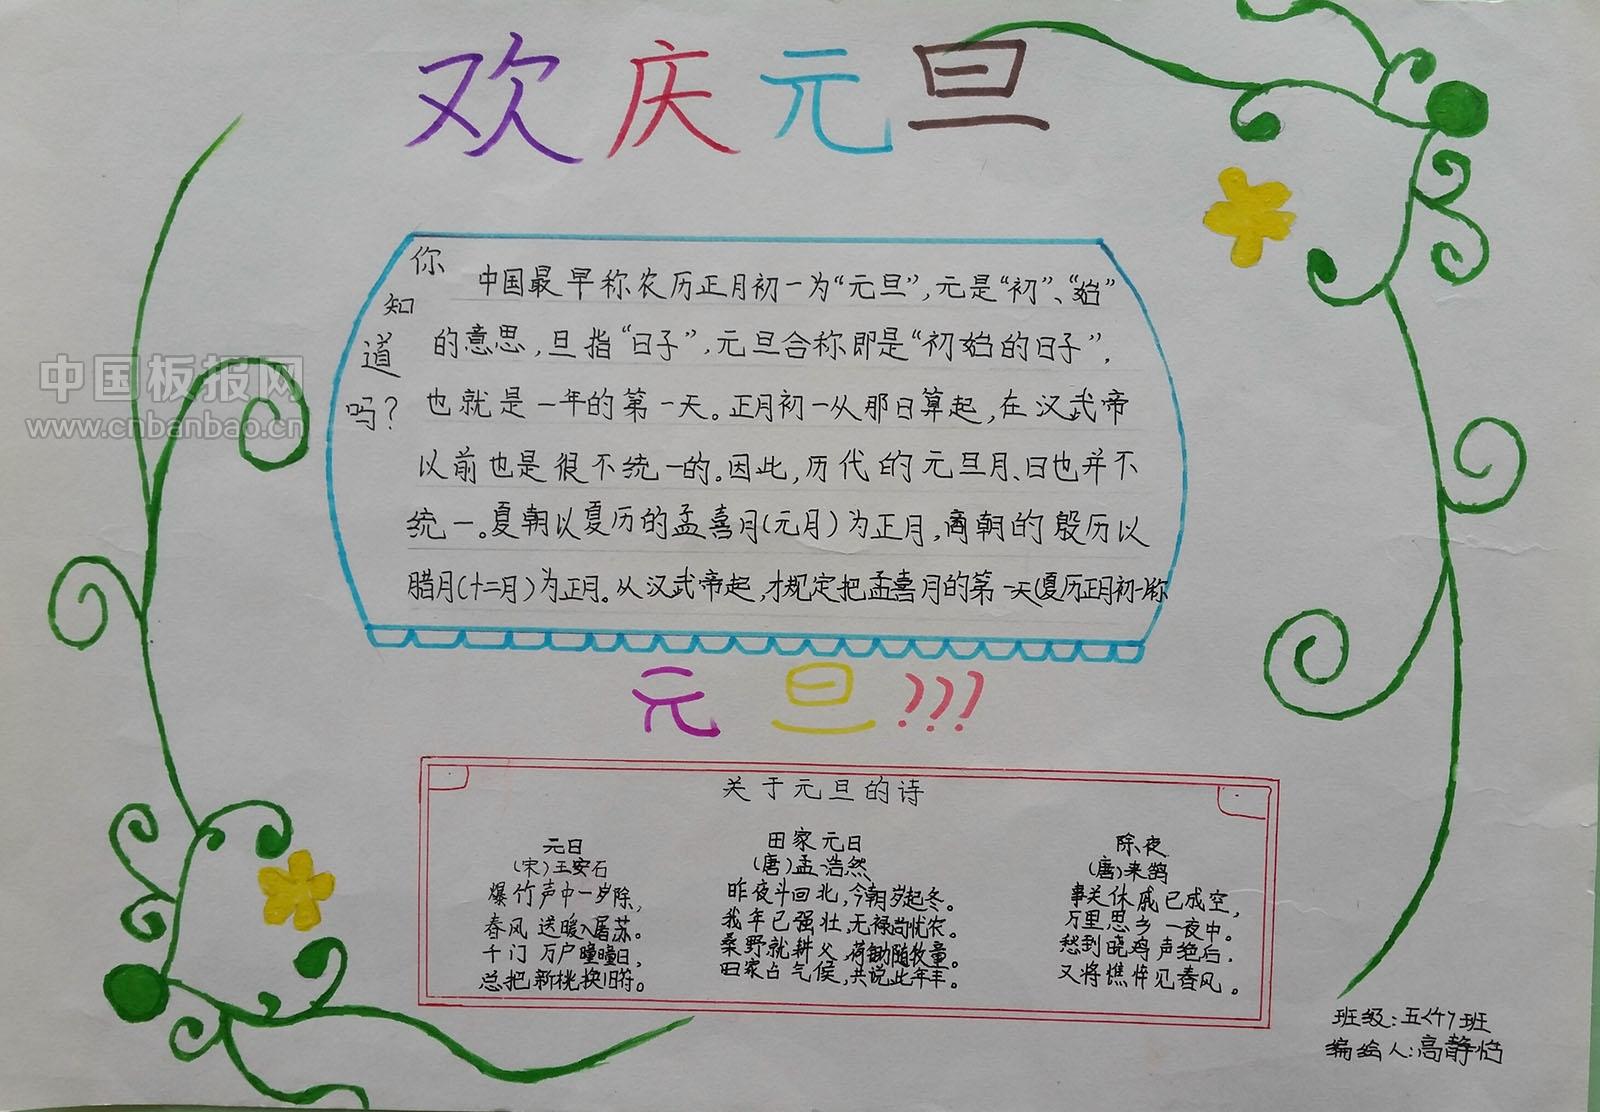 欢庆元旦
你知道吗？
中国最早称农历正月初一为“元旦”，元是“初”、“始”
的意思，旦指“日子”，元旦合称即是“初始的日子”，
也就是一年的第一天。正月初一从那日算起，在汉武帝
以前也是很不统一的。因此，历代的元旦月、日也并不
统一。夏朝以夏历的孟喜月(元月)为正月，商朝的殷历以
腊月(十二月)为正月。从汉武帝起，才规定把孟喜月的第一天(夏历正月初一)称
元旦???
关于元旦的诗
元日
(宋)王安石
爆竹声中一岁除，
春风送暖入屠苏。
千门万户曈曈日，
总把新桃换旧符。
田家元日
(唐)孟浩然
昨夜斗回北，今朝岁起冬。
我年已强壮，无禄尚忧农。
桑野就耕父，荷锄随牧童。
田家占气候，共说此年丰。
除夜
(唐)来鹄
事关休戚已成空，
万里思乡一夜中。
愁到晓鸡声绝后，
又将憔悴见春风。
班级:五(7)班
编绘人:高静怡
中国板报网
www.cnbanbao.cn